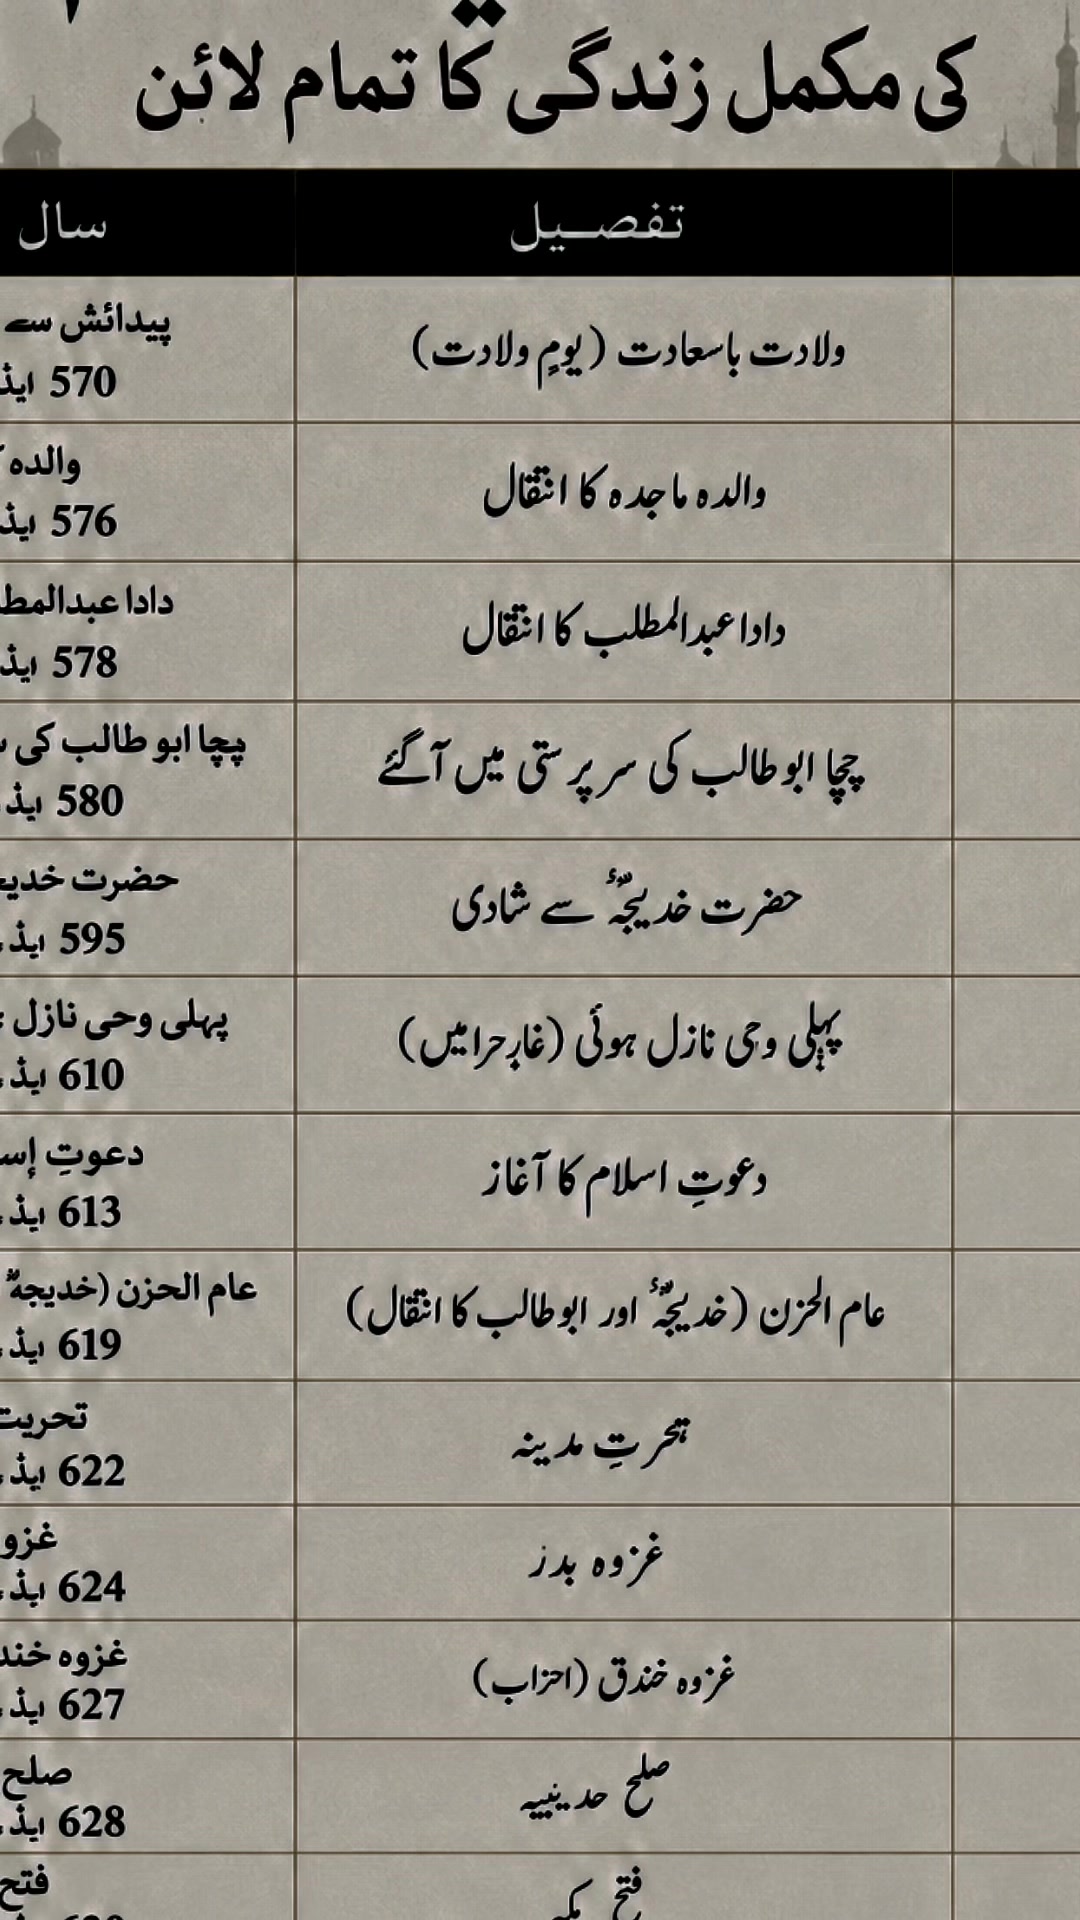 کی مکمل زندگی کا تمام لائن
تفصیل
سال
ولادت باسعادت (یومِ ولادت)
پیدائش سے
570
والدہ ماجدہ کا انتقال
والدہ
576
دادا عبدالمطلب کا انتقال
دادا
578
چچا ابو طالب کی سرپرستی میں آگئے
پچا ابو طالب کی
580
حضرت خدیجہؓ سے شادی
حضرت
595
پہلی وحی نازل ہوئی (غارِحرامیں)
پہلی وحی نازل
610
دعوتِ اسلام کا آغاز
دعوتِ
613
عام الحزن (خدیجہؓ اور ابوطالب کا انتقال)
عام الحزن (خدیجہؓ
619
مدینہ
622
غزوہ بدز
624
غزوہ خندق (احزاب)
غزوہ
627
صلح
صلح
628
فتح
فتح